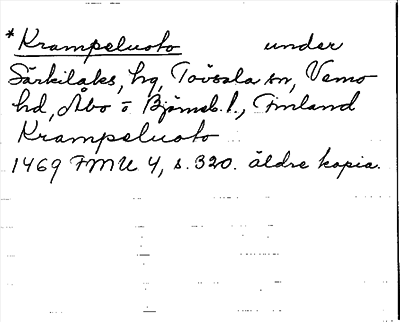 *Krampeluoto under
Särkilaks, hg, Tövsala sn, Vemo
hd, Åbo o Björneb. l., Finland
Krampeluoto
1469 FMU 4, s. 320. äldre kopia.